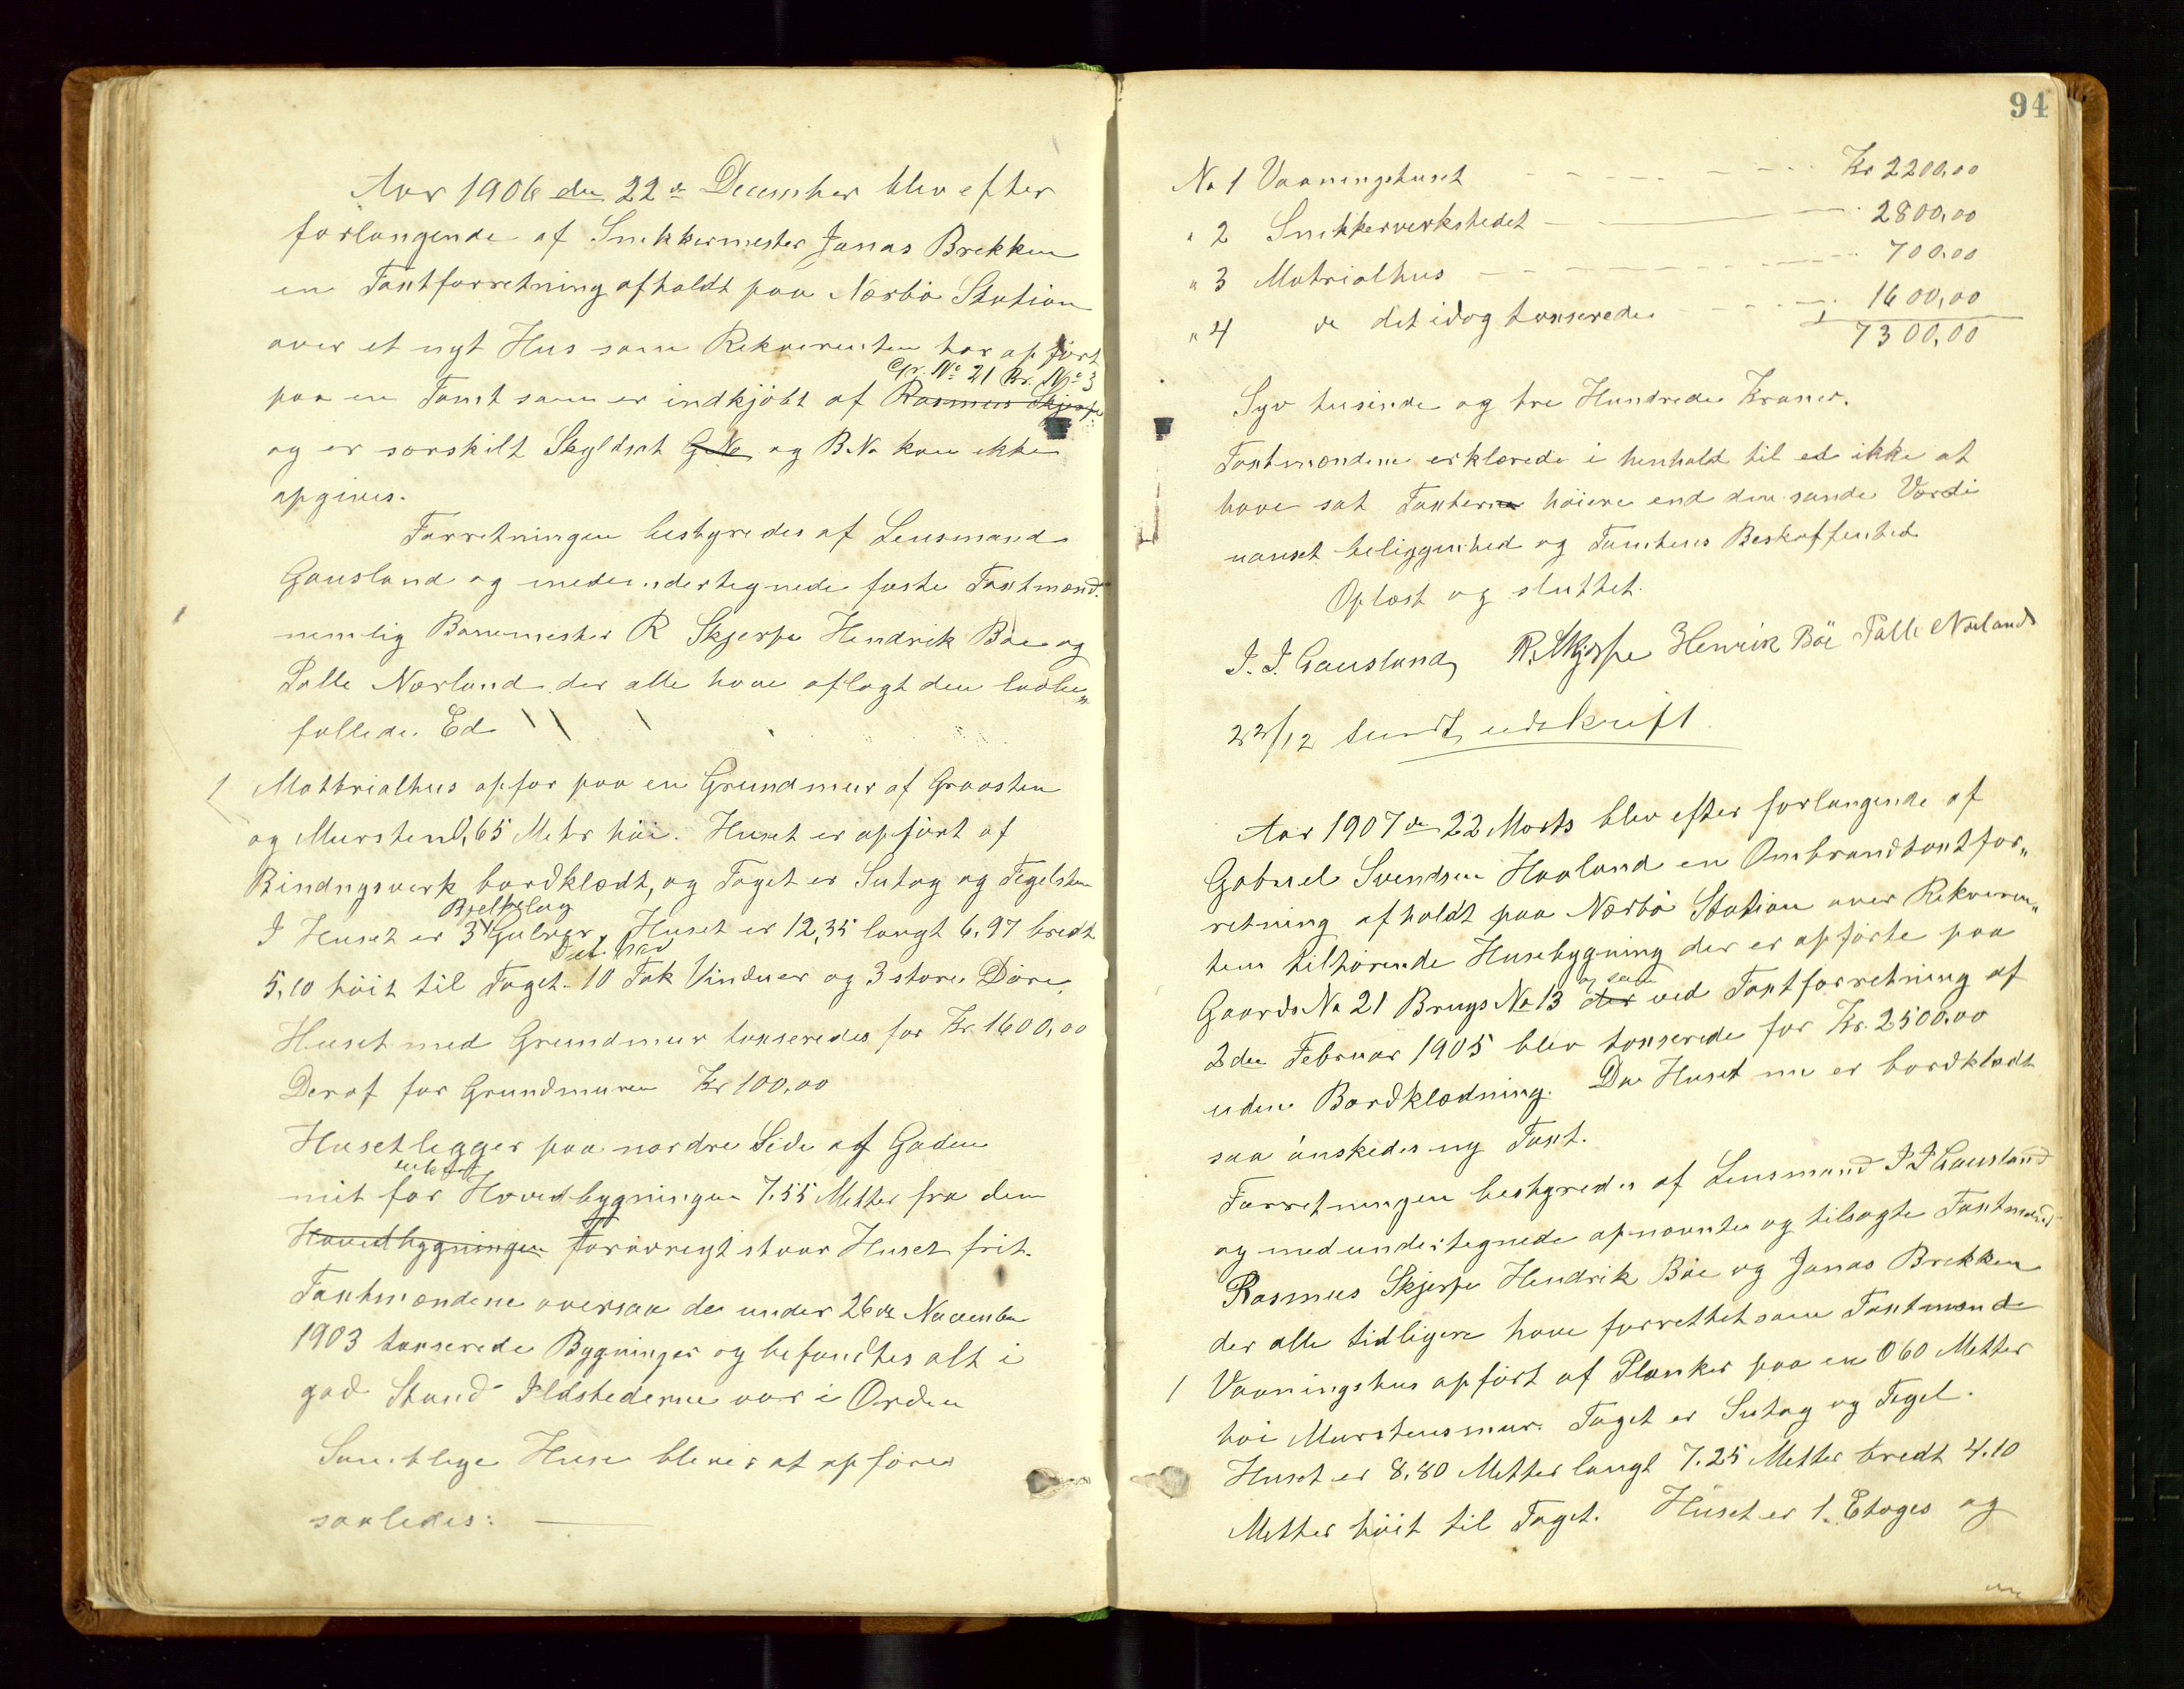 Aar 1906 den 22de December blev efter
forlangende af Snekkermester Jonas Brekken
en Taxtforretning afholdt paa Nærbø Station
over et nyt Hus som Rekverenten har opført
Gr. No 21 Br. No 3
paa en Tomt som er indkjöbt af Rasmus Skjerpe
og er særskilt Skyldsat G No og B.No kan ikke
opgives.
Forretningen bestyredes af Lensmand
Gausland og medundertegnede faste Taxtmænd.
nemlig Banemester R Skjerpe Hendrik Böe og
Talle Nærland der alle have aflagt den lovbe„
fallede Ed
1 Mattrialhus opfor paa en Grundmur af Graasten
og Mursten 0,65 Metr höi. Huset er opfört af
Bindngsverk bordklædt, og Taget er Sutag og Tegelsten
Bjelkelag
I Huset er 3 Gulver. Huset er 12,35 langt 6.97 bredt
Det har
5,10 höit til Taget. 10 Fak Vinduer og 3 store Döre.
Huset med Grundmur taxseredes for Kr. 1600,00
Deraf for Grundmuren Kr 100,00
Huset legger paa nordre Side af Gaden
mit for Hovedbygningen 7.55 Metter fra den
Hovedbygningen forøvregt staar Huset frit.
Taxtmændene oversaa de under 26de November
1903 taxserede Bygninger og befandtes alt i
god Stand Ildstederne var i Orden
Samtlige Huse blever at opföres
saaledes:
94
No 1 Vaaningshuset Kr 2200,00
" 2 Snekkerverkstedet 2800,00
" 3 Matrialhus 700,00
" 4 do det idag taxserede 1600,00
7300,00
Syv tusinde og tre Hundrede Kroner.
Taxtmændene erklærede i henhold til ed ikke at
have sat Taxterne høiere end den sande Værdi
uanset beliggenhed og Tomtens Beskaffenhed
Oplæst og sluttet.
J. J. Gausland R. Skjerpe Henrik Böe Talle Nærland
22/12 sendt udskrift.
Aar 1907 de 22 Marts blev efter forlangende af
Gabriel Svendsen Haaland en Ombrandtaxtfor„
retning afholdt paa Nærbø Station over Rekveren„
ten tilhörende Husebygning der er opförte paa
og som
Gaards No 21 Brugs No 13 der ved Taxtforretning af
2den Februar 1905 blev taxserede for Kr. 2500,00
uden Bordklædning. Da Huset nu er bordklædt
saa önskedes ny Taxt.
Forretningen bestyredes af Lensmand J J Gausland
og medundertegnede opnævnte og tilsagte Taxtmænd
Rasmus Skjerpe Hendrik Böe og Jonas Brekken
der alle tidligere have forrettet som Taxtmænd
1 Vaaningshus opfört af Planker paa en 0 60 Metter
höi Murstensmur. Taget er Sutag og Tegel.
Huset er 8.80 Metter langt 7.25 Metter bredt 4.10
Metter höit til Taget. Huset er 1. Etages og